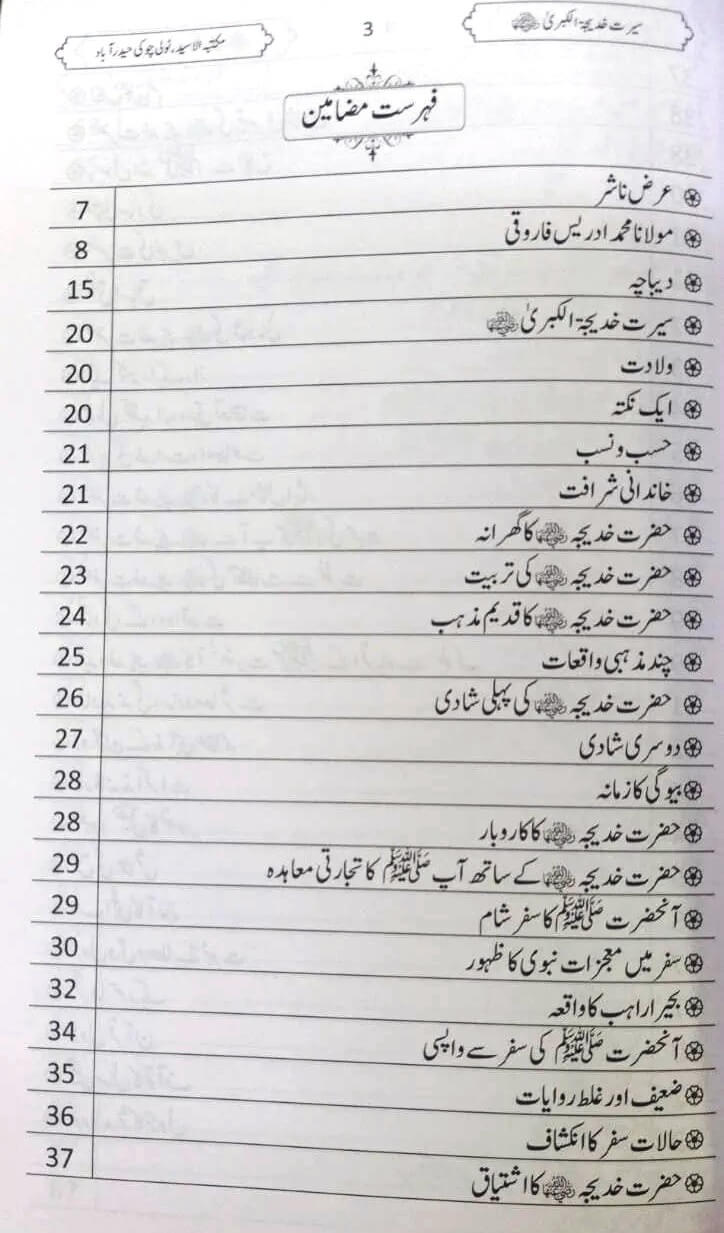 سیرت خدیجۃ الکبریٰ رضی اللہ عنہا 3 مکتبہ الاسید، ٹولی چوکی حیدرآباد
فہرست مضامین
عرض ناشر 7
مولانا محمد ادریس فاروقی 8
دیباچہ 15
سیرت خدیجۃ الکبریٰ رضی اللہ عنہا 20
ولادت 20
ایک نکتہ 20
حسب و نسب 21
خاندانی شرافت 21
حضرت خدیجہ رضی اللہ عنہا کا گھرانہ 22
حضرت خدیجہ رضی اللہ عنہا کی تربیت 23
حضرت خدیجہ رضی اللہ عنہا کا قدیم مذہب 24
چند مذہبی واقعات 25
حضرت خدیجہ رضی اللہ عنہا کی پہلی شادی 26
دوسری شادی 27
بیوگی کا زمانہ 28
حضرت خدیجہ رضی اللہ عنہا کا کاروبار 28
حضرت خدیجہ رضی اللہ عنہا کے ساتھ آپ ﷺ کا تجارتی معاہدہ 29
آنحضرت ﷺ کا سفر شام 29
سفر میں معجزات نبوی کا ظہور 30
بحیرا راہب کا واقعہ 32
آنحضرت ﷺ کی سفر سے واپسی 34
ضعیف اور غلط روایات 35
حالات سفر کا انکشاف 36
حضرت خدیجہ رضی اللہ عنہا کا اشتیاق 37